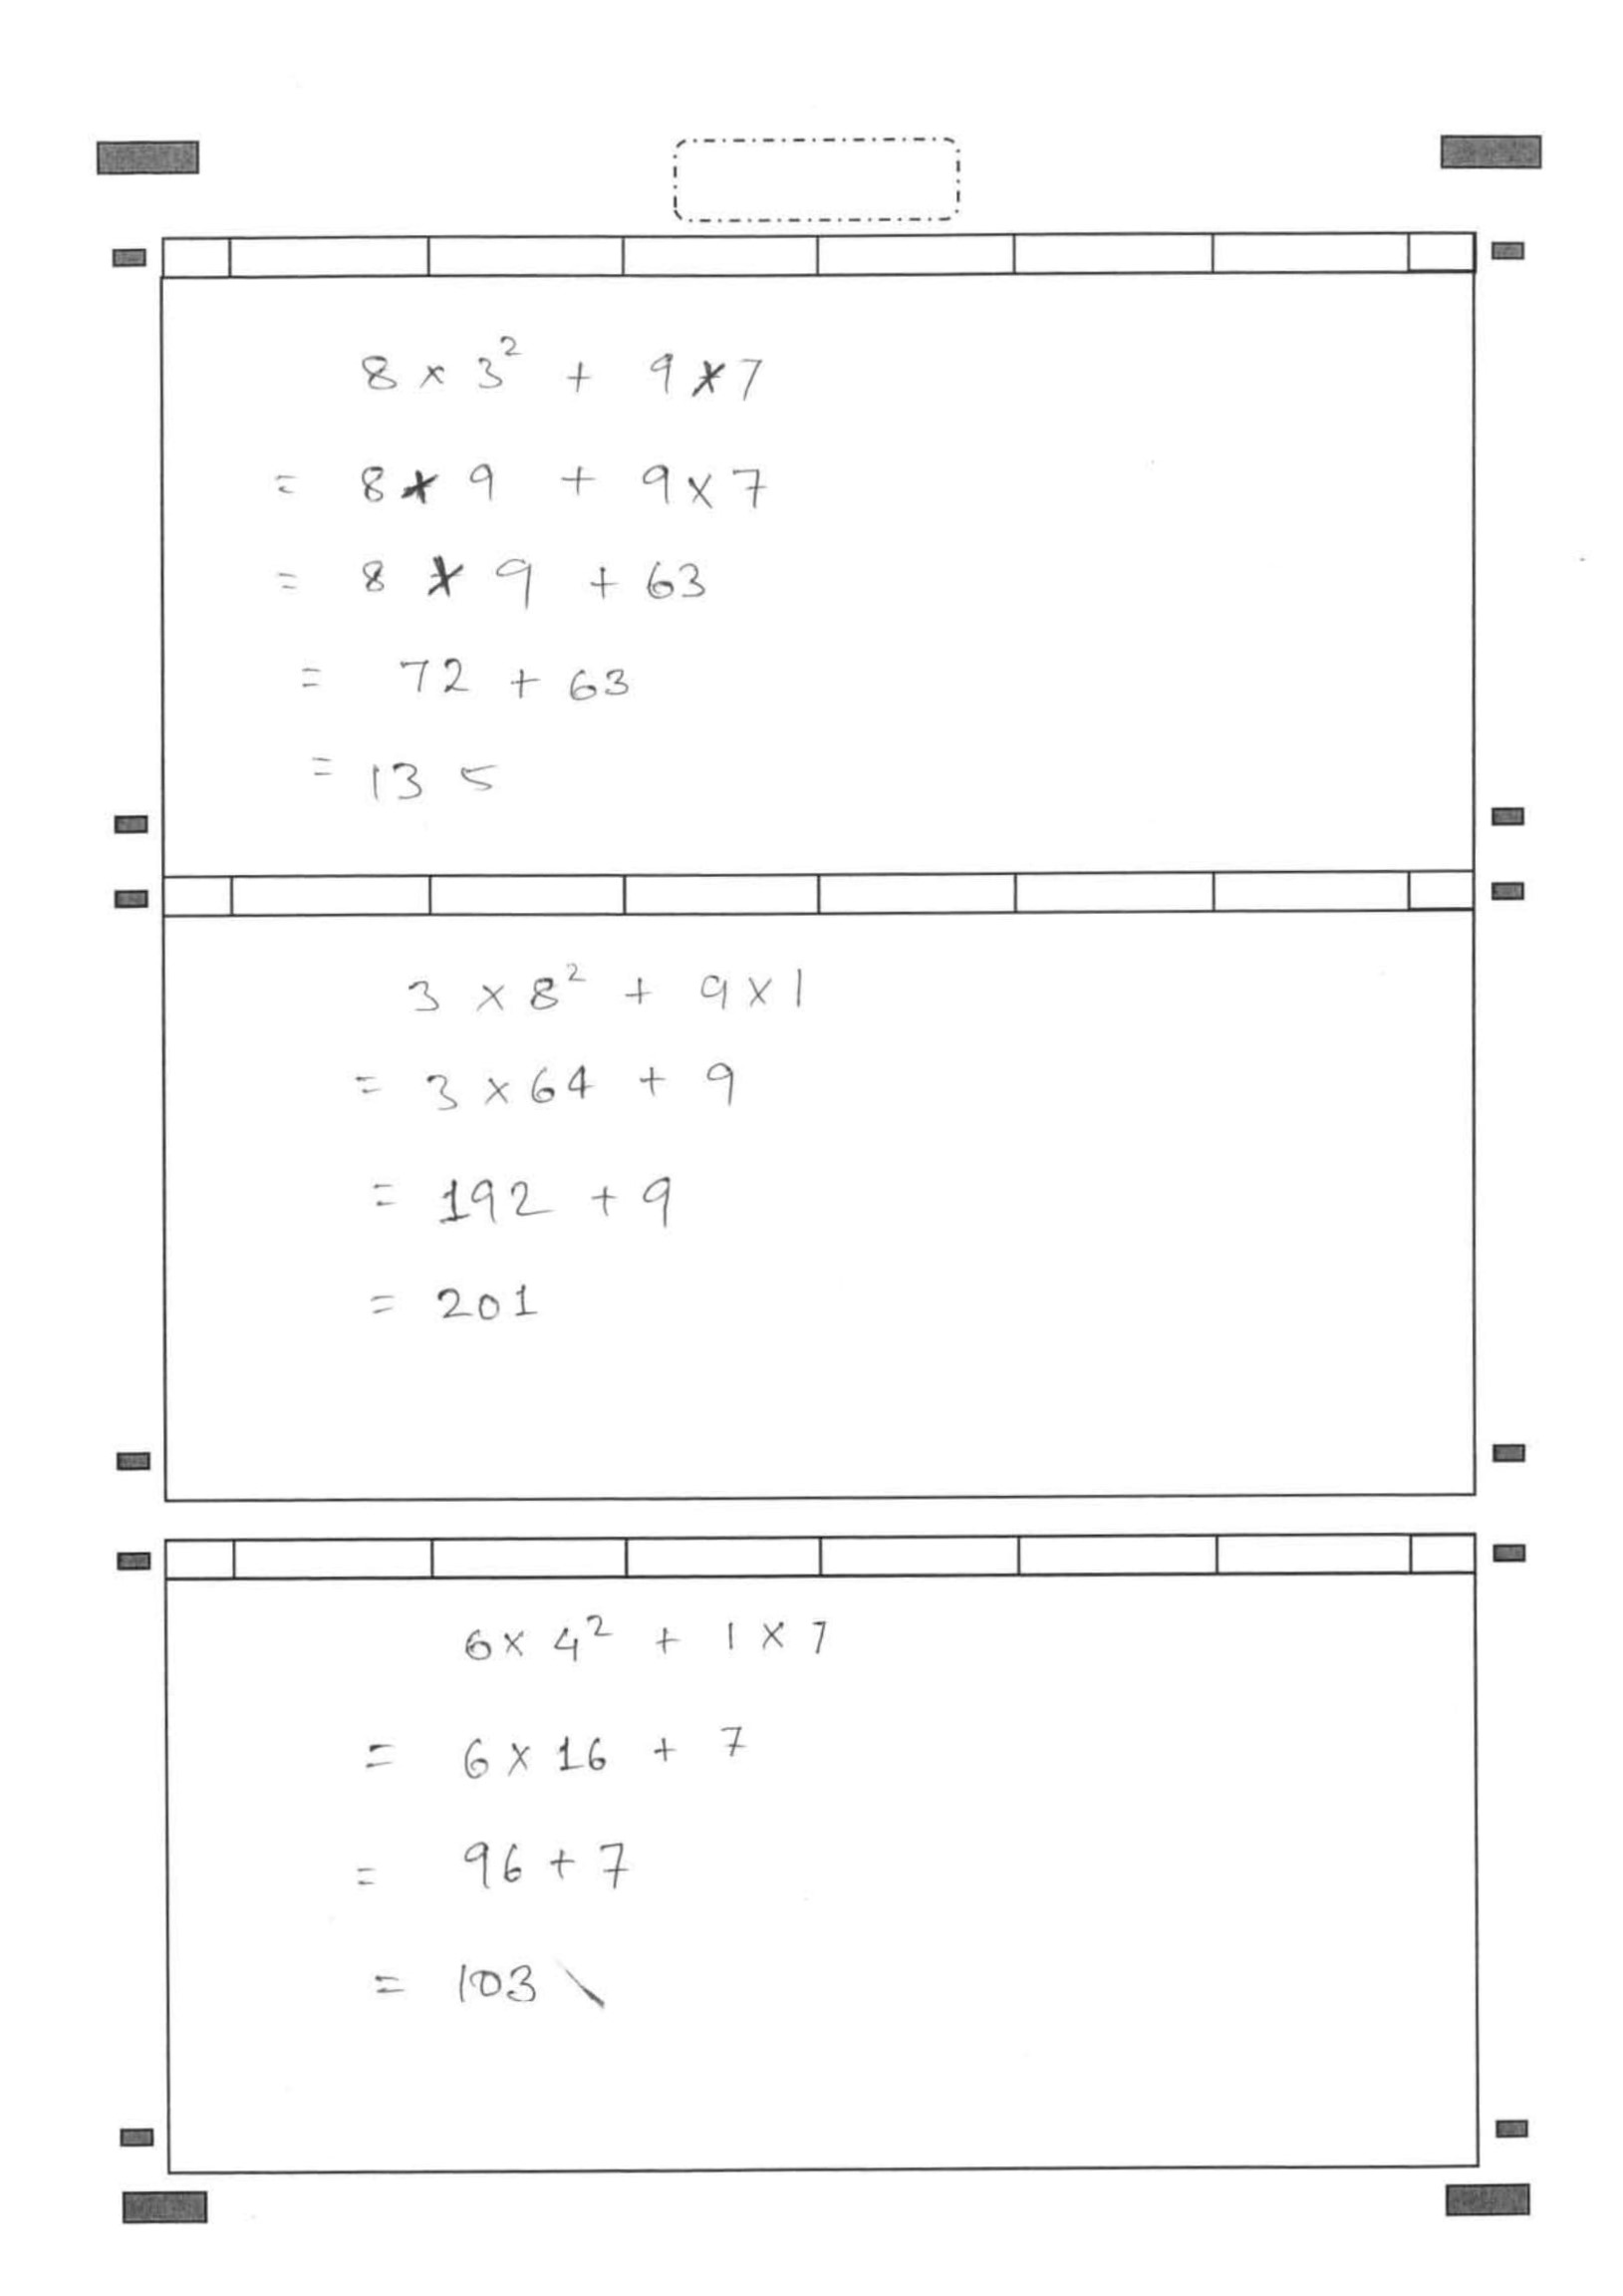 8 × 3² + 9 × 7
= 8 × 9 + 9 × 7
= 8 × 9 + 63
= 72 + 63
= 135
3 × 8² + 9 × 1
= 3 × 64 + 9
= 192 + 9
= 201
6 × 4² + 1 × 7
= 6 × 16 + 7
= 96 + 7
= 103 \